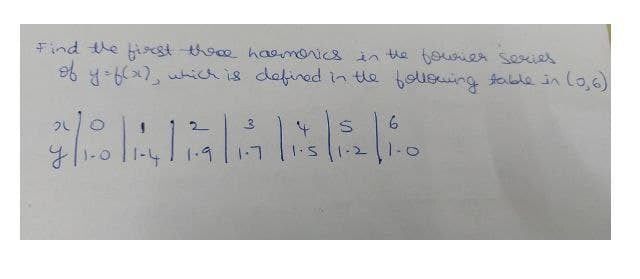 Find the first three harmonics in the fourier series
of y=f(x), which is defined in the following table in (0,6)
x | 0 | 1 | 2 | 3 | 4 | 5 | 6
y | 1.0 | 1.4 | 1.9 | 1.7 | 1.5 | 1.2 | 1.0